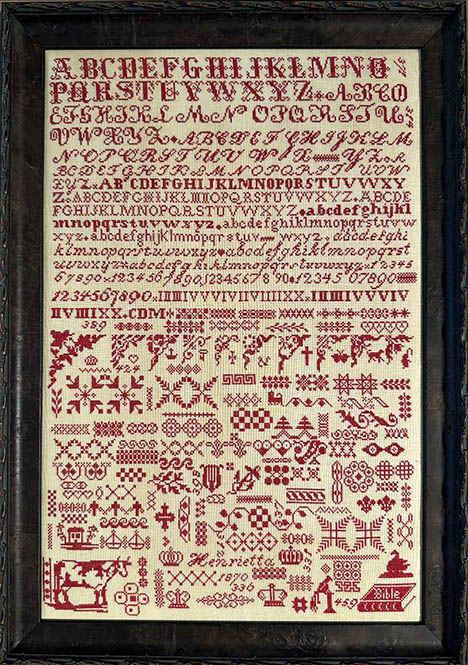 ABCDEFGHIJKLMNO
PQRSTUVWXYZ ABCD
EFGHIJKLMNOPQRSTU
VWXYZ ABCDEFGHIJKLM
NOPQRSTUVWX YZ
BCDEFGHIJKLMNOPQRSTUVW
XYZ ABCDEFGHIJKLMNOPQRSTUVWXY
Z ABCDEFGHIJKLMNOPQRSTUVWXYZ ABCDE
FGHIJKLMNOPQRSTUVWXYZ abcdefghijkl
mnopqrstuvwxyz abcdefghijklmnopqrstuvw
xyz abcdefghijklmnopqrstuv abcdefghij
klmnopqrstuvwxyz abcdefghijklmnopqrst
uvwxyz abcdefghijklmnopqrstuvwxyz 12345
67890 1234567890 1234567890 12345 67890
1234567890
389
724
Henrietta
1870
936
459
Bible